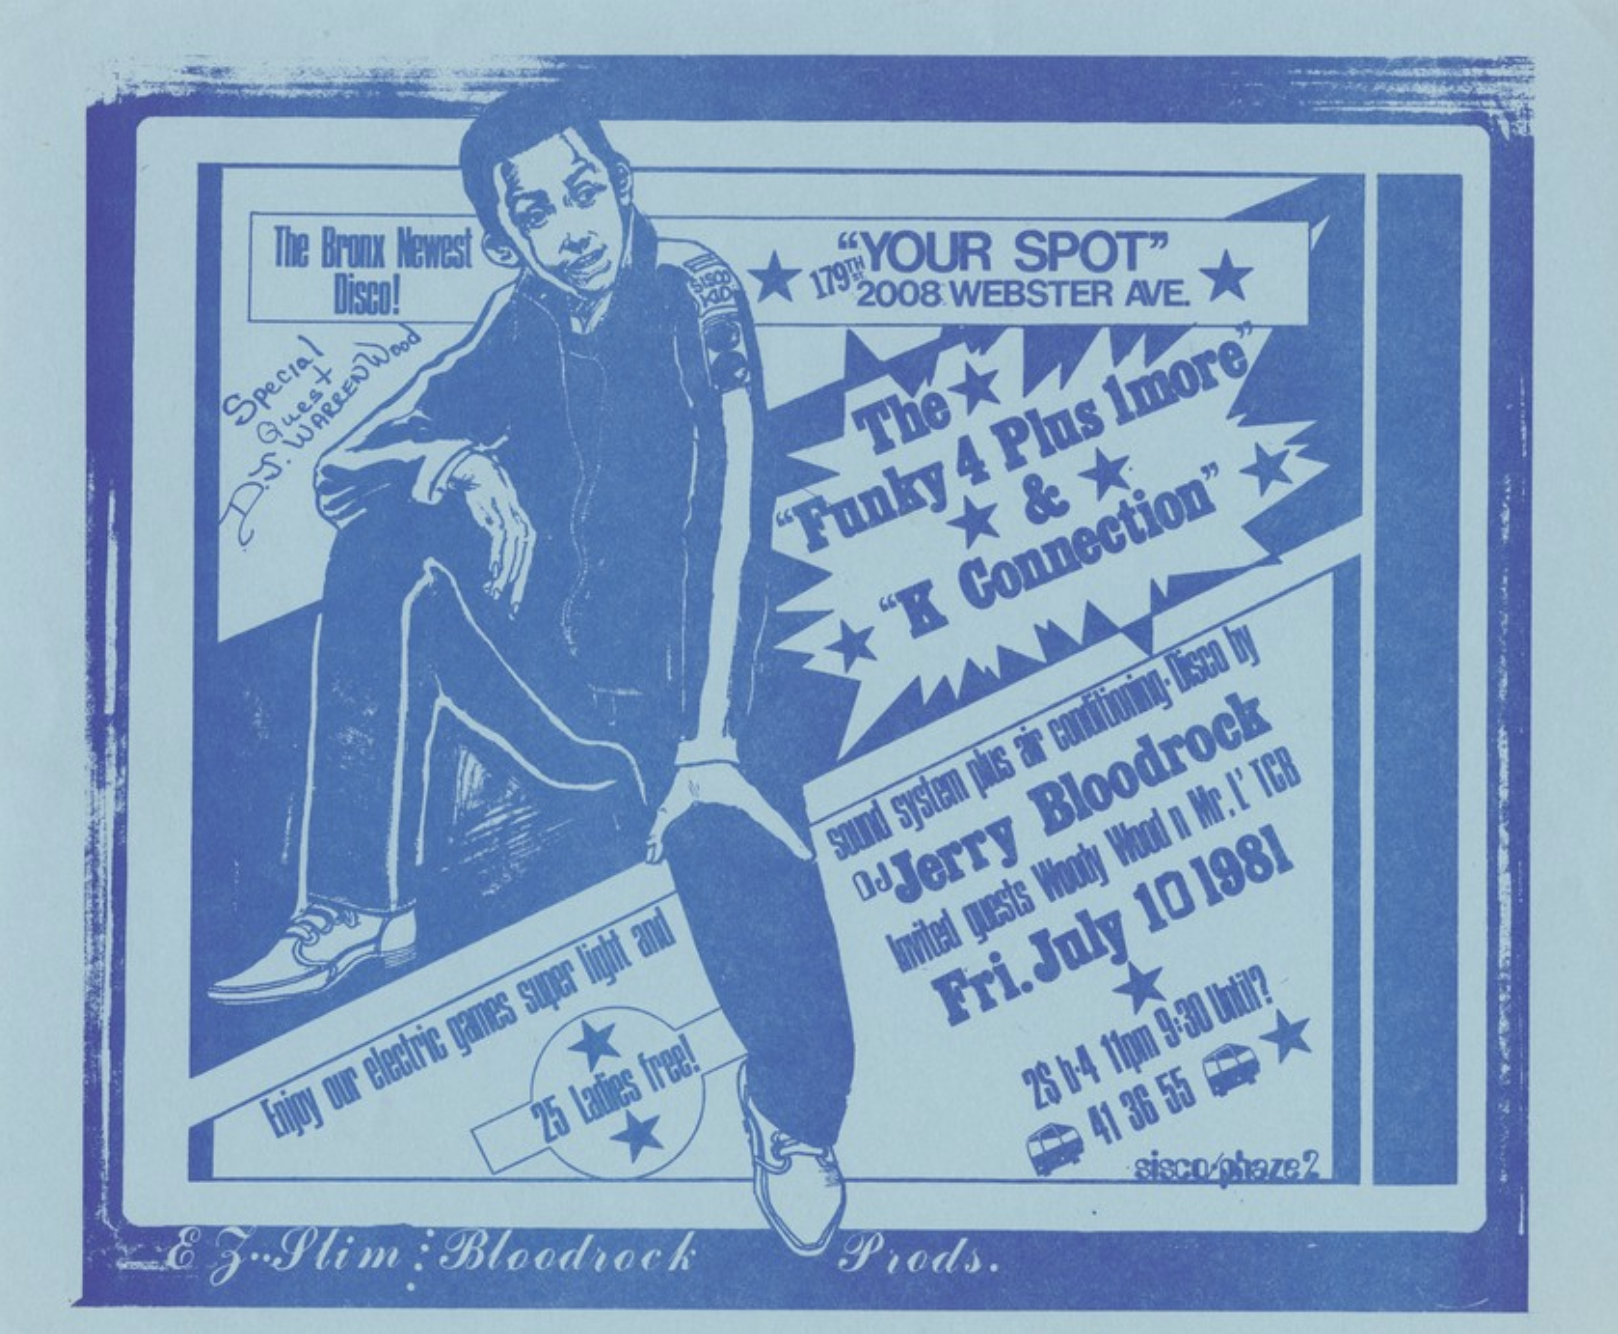 The Bronx Newest
Disco!
"YOUR SPOT"
179TH ST
2008 WEBSTER AVE.
SISCO
KID
Special
Guest
D.J. WARREN Wood
The
"Funky 4 Plus 1more"
&
"K Connection"
Enjoy our electric games super light and
sound system plus air conditioning·Disco by
DJ Jerry Bloodrock
Invited guests Woody Wood n Mr. L' TCB
Fri. July 10 1981
25 Ladies free!
2$ b·4 11pm 9:30 Until?
41 36 55
sisco/phaze2
E Z··Slim Bloodrock Prods.